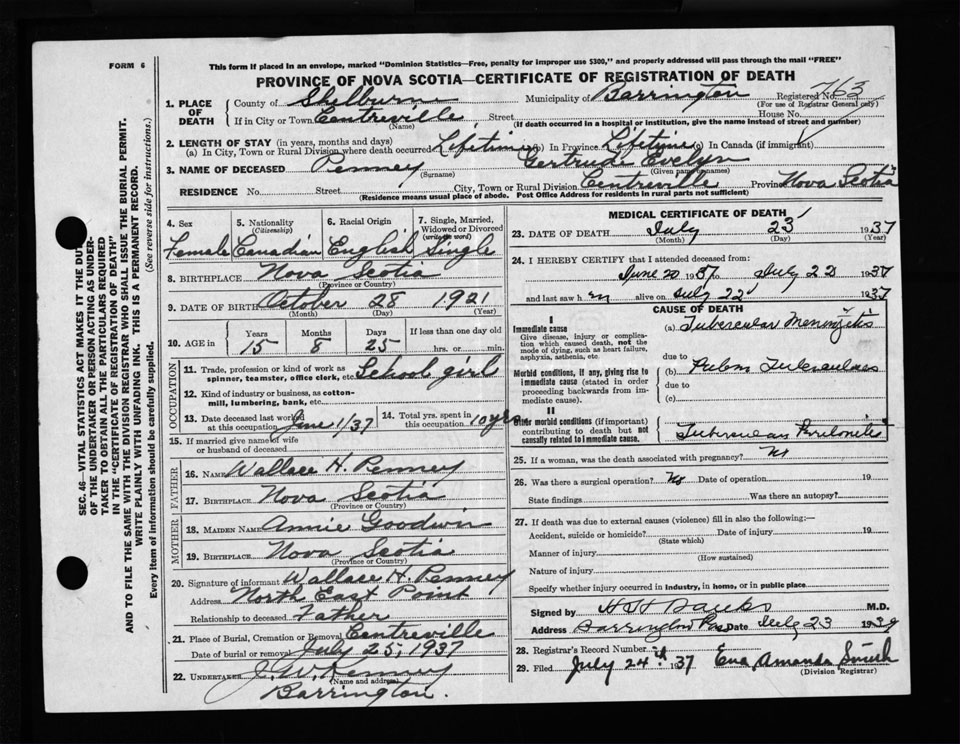 FORM 6
This form if placed in an envelope, marked "Dominion Statistics—Free, penalty for improper use $300," and properly addressed will pass through the mail "FREE"
PROVINCE OF NOVA SCOTIA—CERTIFICATE OF REGISTRATION OF DEATH
1. PLACE OF DEATH
County of Shelburne Municipality of Barrington Registered No. 763
(For use of Registrar General only)
If in City or Town Centreville Street House No.
(Name) (If death occurred in a hospital or institution, give the name instead of street and number)
2. LENGTH OF STAY (in years, months and days)
(a) In City, Town or Rural Division where death occurred Lifetime (b) In Province Lifetime (c) In Canada (if immigrant)
3. NAME OF DECEASED Penney Gertrude Evelyn
(Surname) (Given name or names)
RESIDENCE No. Street City, Town or Rural Division Centreville Province Nova Scotia
(Residence means usual place of abode. Post Office Address for residents in rural parts not sufficient)
SEC. 46—VITAL STATISTICS ACT MAKES IT THE DUTY
OF THE UNDERTAKER OR PERSON ACTING AS UNDER-
TAKER TO OBTAIN ALL THE PARTICULARS REQUIRED
IN THE "CERTIFICATE OF REGISTRATION OF DEATH"
AND TO FILE THE SAME WITH THE DIVISION REGISTRAR WHO SHALL ISSUE THE BURIAL PERMIT.
WRITE PLAINLY WITH UNFADING INK. THIS IS A PERMANENT RECORD.
Every item of information should be carefully supplied. (See reverse side for instructions.)
4. Sex 5. Nationality (Citizenship) 6. Racial Origin 7. Single, Married, Widowed or Divorced (write the word)
Female Canadian English Single
8. BIRTHPLACE Nova Scotia
(Province or Country)
9. DATE OF BIRTH October 28 1921
(Month) (Day) (Year)
10. AGE in Years Months Days If less than one day old
15 8 25 hrs. or min.
OCCUPATION
11. Trade, profession or kind of work as
spinner, teamster, office clerk, etc. School girl
12. Kind of industry or business, as cotton-
mill, lumbering, bank, etc.
13. Date deceased last worked at this occupation June 1/37 14. Total yrs. spent in this occupation 10 yrs
15. If married give name of wife
or husband of deceased
FATHER
16. NAME Wallace H. Penney
17. BIRTHPLACE Nova Scotia
(Province or Country)
MOTHER
18. MAIDEN NAME Annie Goodwin
19. BIRTHPLACE Nova Scotia
(Province or Country)
20. Signature of informant Wallace H. Penney
Address North East Point
Relationship to deceased Father
21. Place of Burial, Cremation or Removal Centreville
Date of burial or removal July 25, 1937
22. UNDERTAKER J. W. Kenney
(Name and address)
Barrington.
MEDICAL CERTIFICATE OF DEATH
23. DATE OF DEATH July 23 1937
(Month) (Day) (Year)
24. I HEREBY CERTIFY that I attended deceased from:
June 20 1937 to July 22 1937
and last saw h er alive on July 22 1937
CAUSE OF DEATH
I
Immediate cause
Give disease, injury or complica-
tion which caused death, not the
mode of dying, such as heart failure,
asphyxia, asthenia, etc.
(a) Tubercular Meningitis
due to
Morbid conditions, if any, giving rise to
immediate cause (stated in order
proceeding backwards from im-
mediate cause).
(b) Pulm Tuberculosis
due to
(c)
II
Other morbid conditions (if important)
contributing to death but not
causally related to immediate cause.
Tubercular Peritonitis
25. If a woman, was the death associated with pregnancy? No
26. Was there a surgical operation? No Date of operation 19
State findings Was there an autopsy?
27. If death was due to external causes (violence) fill in also the following:—
Accident, suicide or homicide? Date of injury 19
(State which)
Manner of injury
(How sustained)
Nature of injury
Specify whether injury occurred in industry, in home, or in public place
Signed by H H Banks M.D.
Address Barrington Pas Date July 23 1937
28. Registrar's Record Number
29. Filed July 24th 37 Eva Amanda Smith
(Division Registrar)